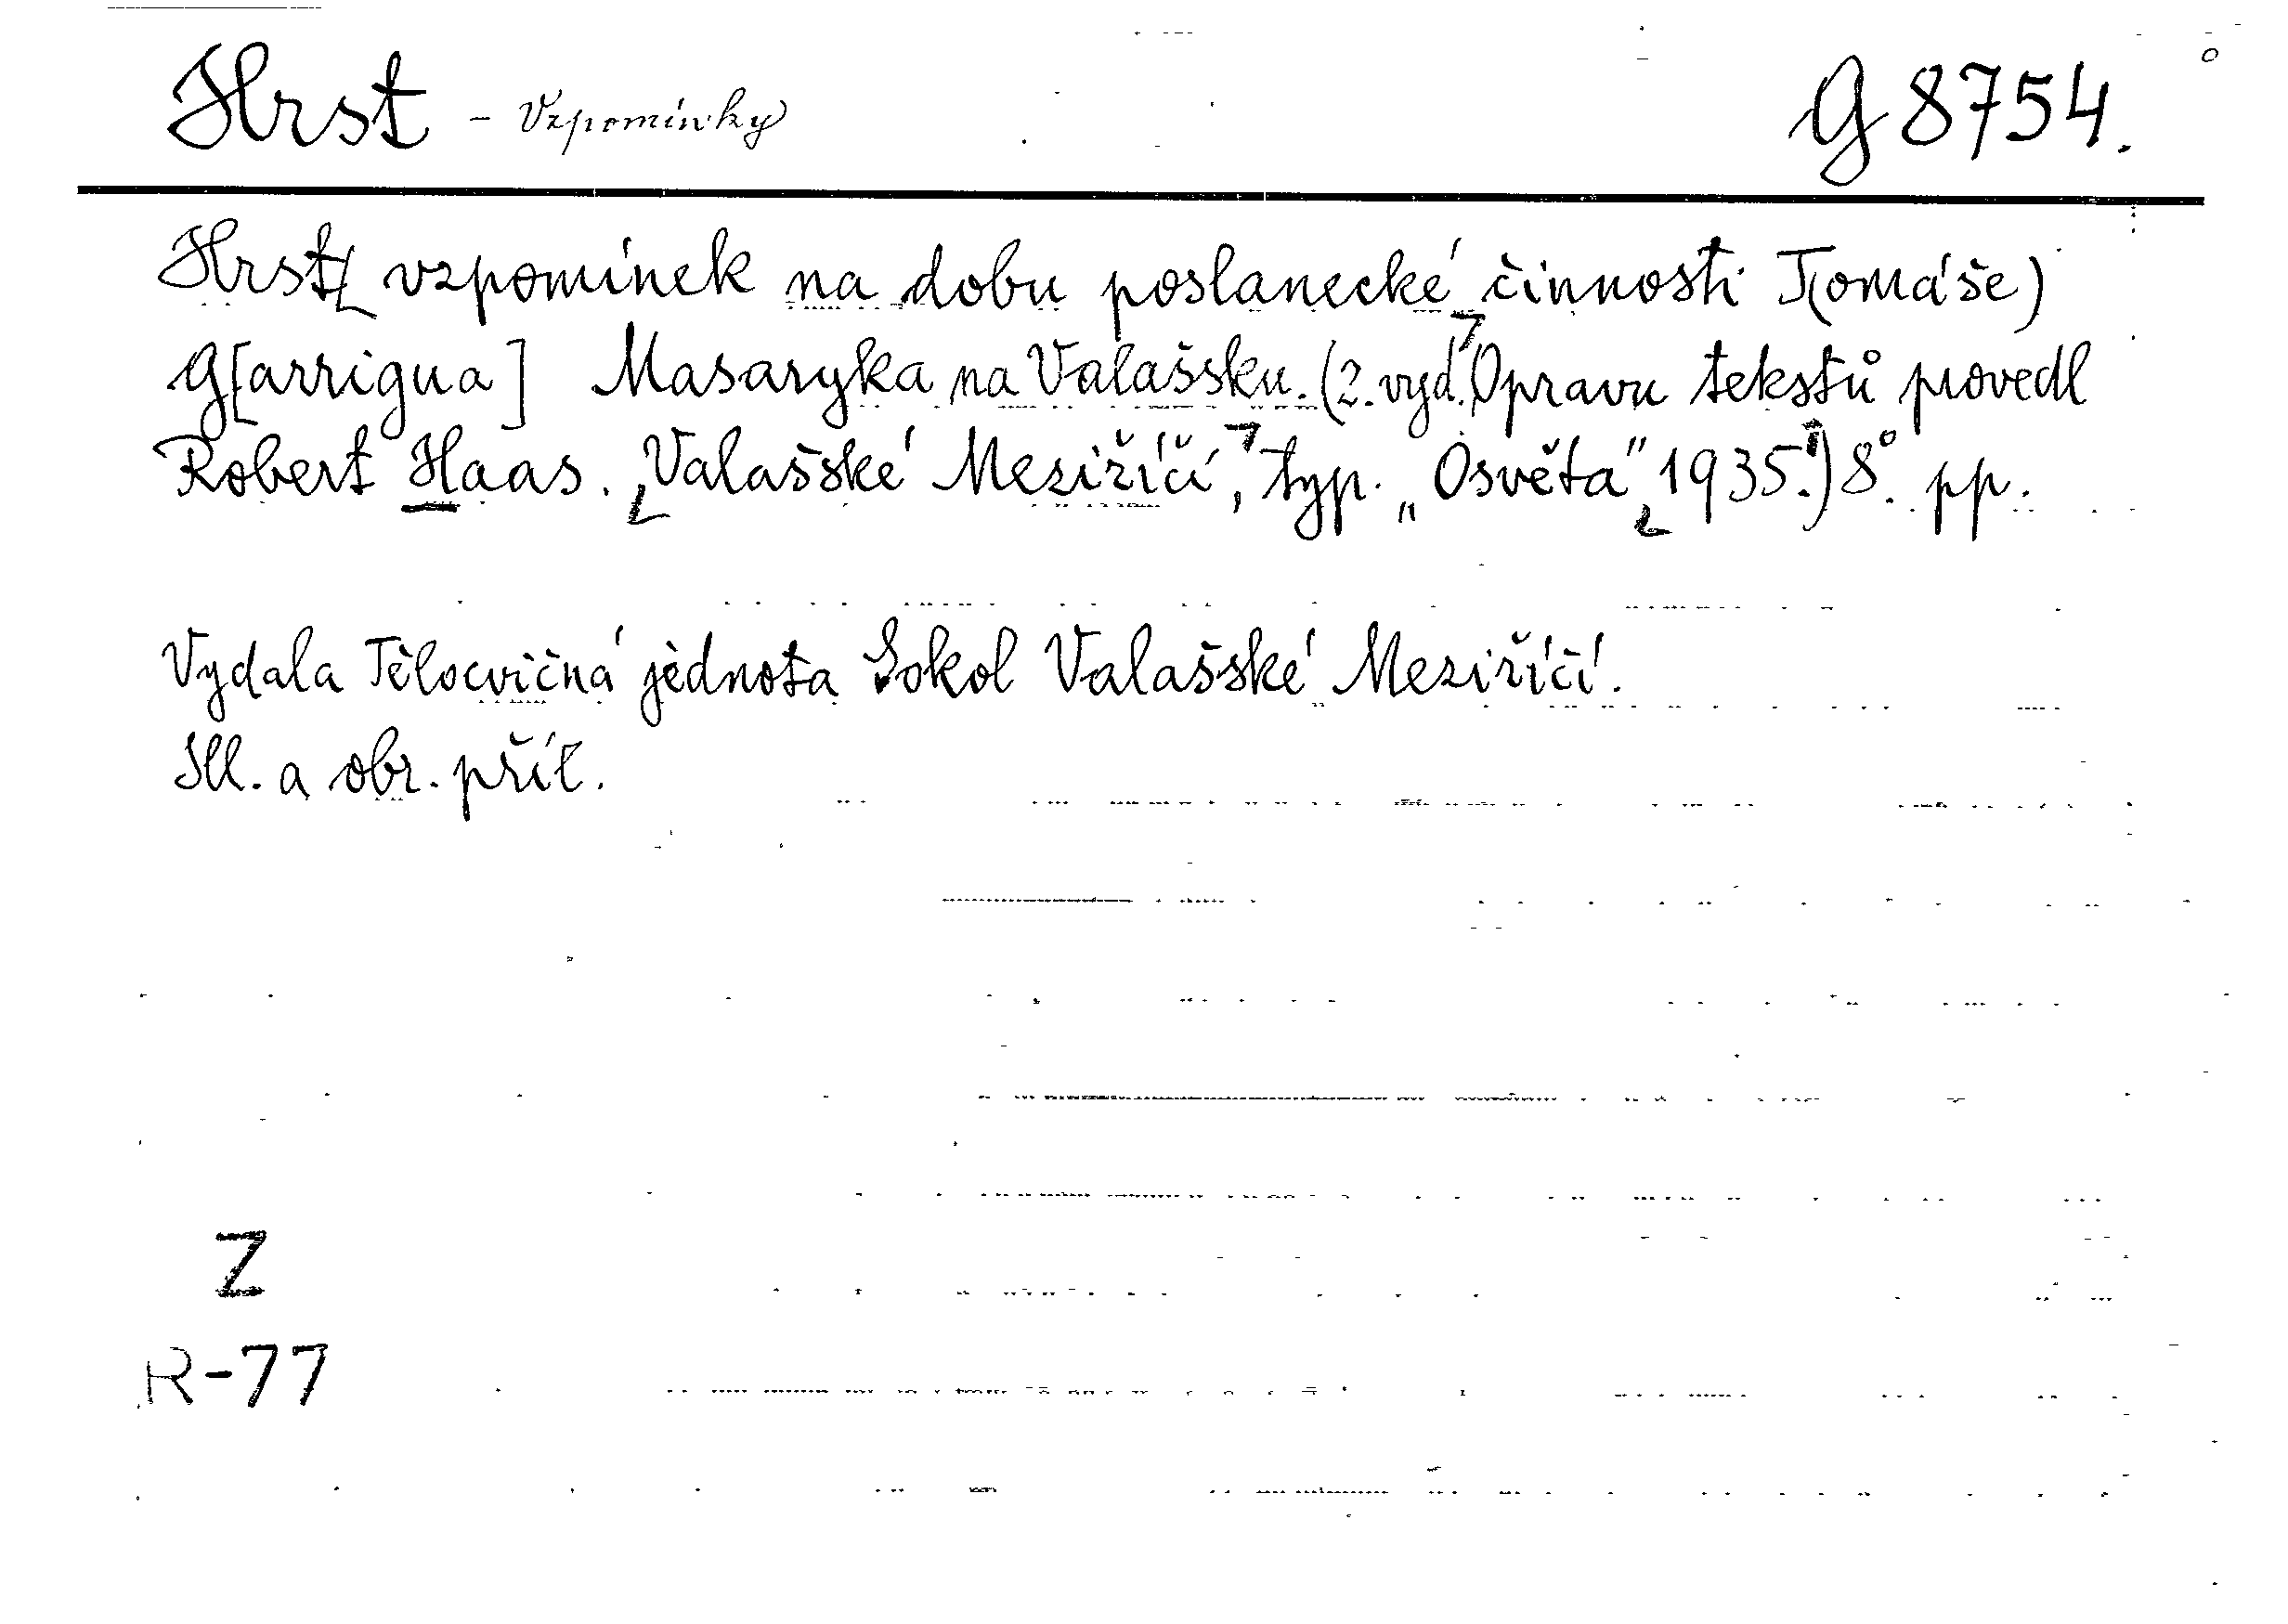 Hrst - Vzpomínky G 8754.
Hrst[ vzpomínek na dobu poslanecké činnosti T(omáše)
G[arrigua] Masaryka na Valašsku. (2. vyd.] Opravu tekstů provedl
Robert Haas. [Valašské Meziříčí], typ. „Osvěta" [1935.]) 8°. pp.
Vydala Tělocvičná jednota Sokol Valašské Meziříčí.
Ill. a obr. příl.
Z
R-77